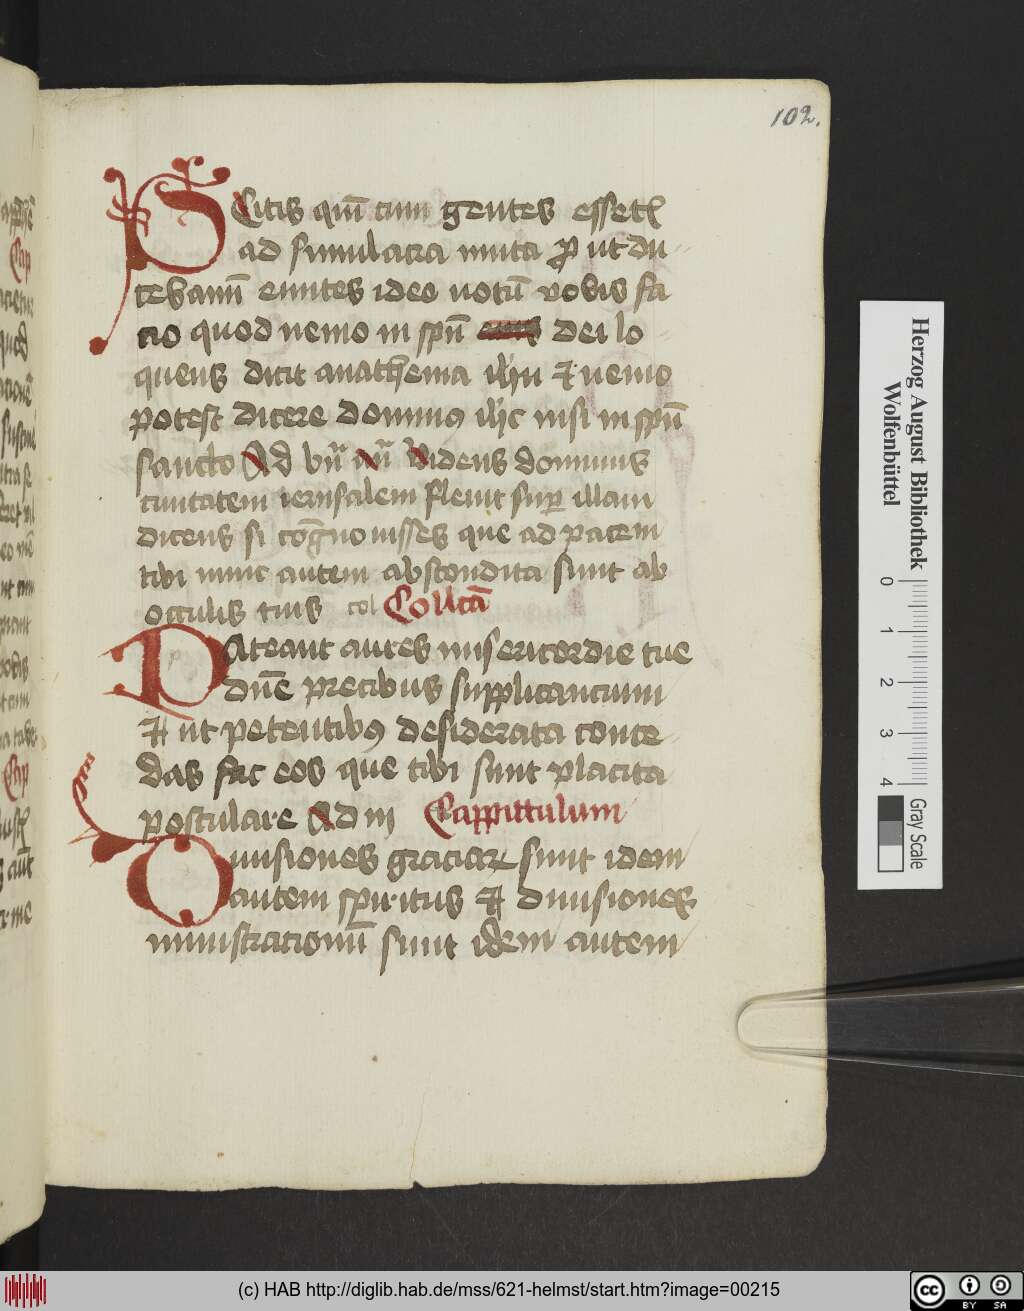 102.
SCitis qm̄ cum gentes essetꝭ
ad simulacra muta ꝓ ut du
cebamī euntes ideo notū vobis fa
cio quod nemo in spū dei lo
quens dicit anathema ih̄u & nemo
potest dicere dominꝰ ih̄c nisi in spū
sancto Ad bn̄ an̄ Videns dominus
ciuitatem ierusalem fleuit suꝑ illam
dicens si cōgnouisses que ad pacem
tibi nunc autem abscondita sunt ab
occulis tuis col Collcā
PAteant aures misericordie tue
dn̄e precibus supplicancium
& ut petentibꝰ desiderata conce
das fac eos que tibi sunt placita
postulare Ad m Cappittulum
Diuisiones graciaꝝ sunt idem
autem spiritus & Diuisiones
ministracionū sunt idem autem
Herzog August Bibliothek
Wolfenbüttel
0 1 2 3 4
Gray Scale
(c) HAB http://diglib.hab.de/mss/621-helmst/start.htm?image=00215
cc BY SA